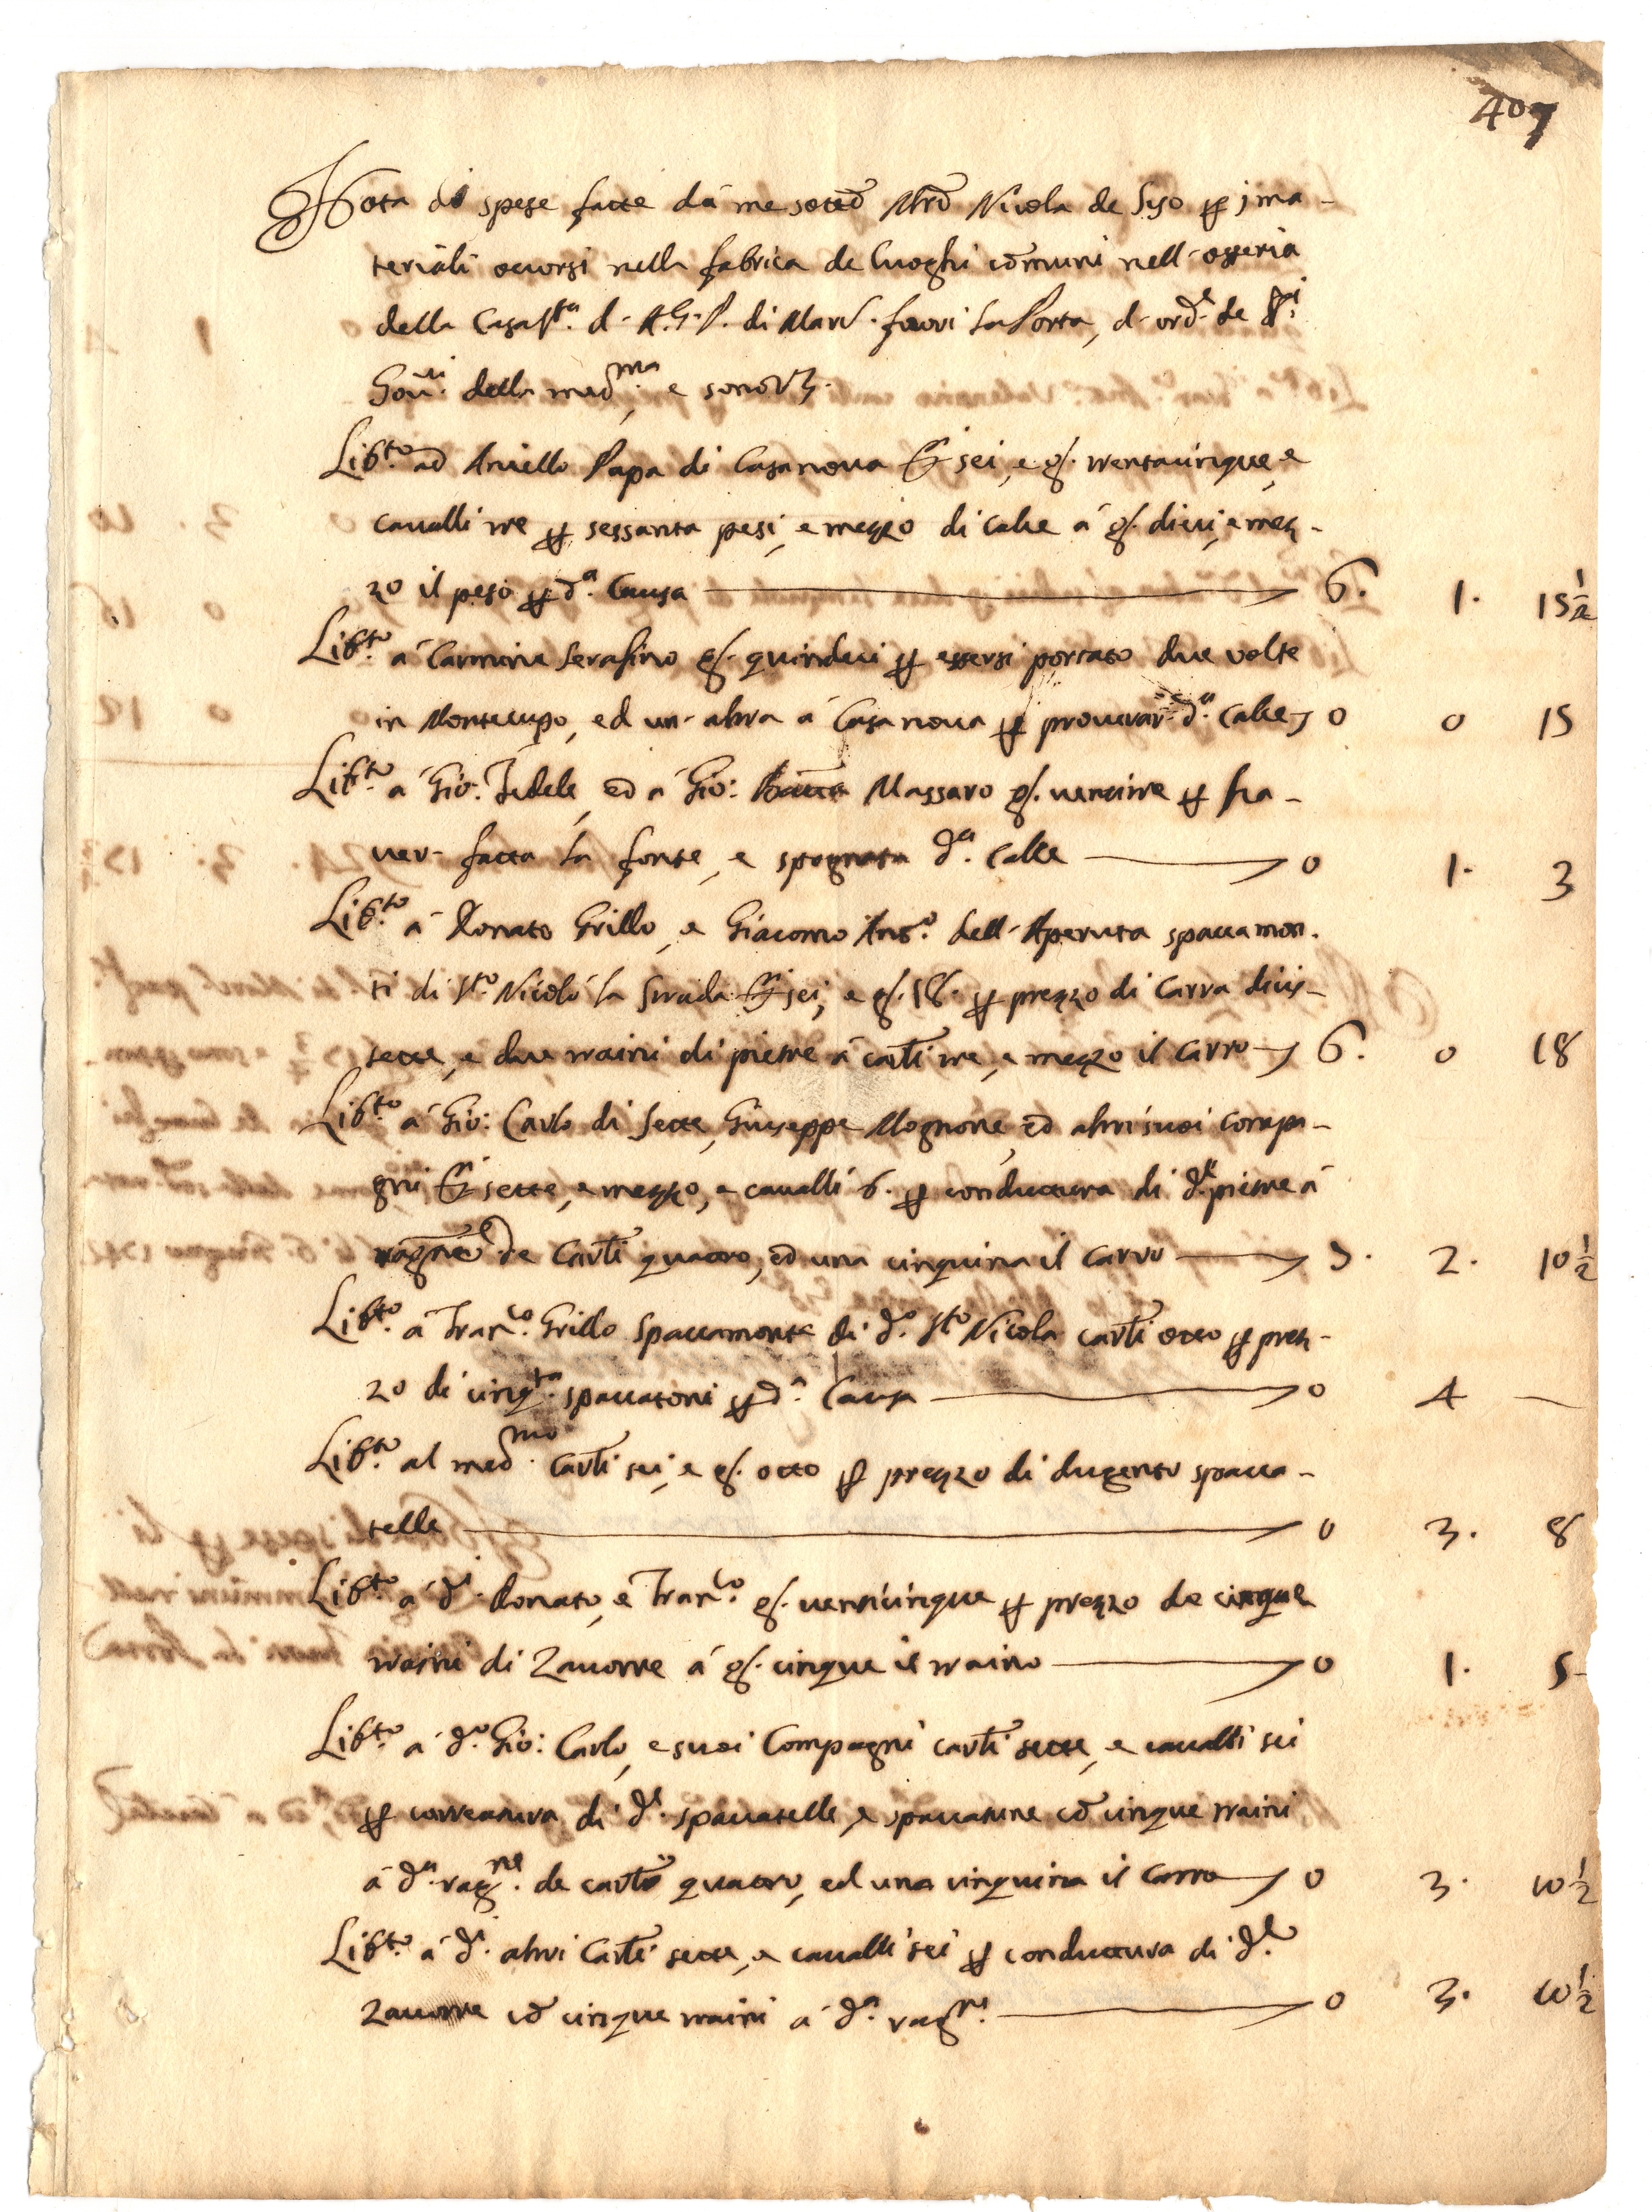 407
Nota di spese fatte dà me sottõ Mrõ Nicola de Siso p i ma-
teriali occorsi nella fabrica de luoghi cõmuni nell'osteria
della Casa Sta. d. A.G.P. di Mard. fuori la Porta, d'ord.e de SS.i
Gov.ri della med.ma, e sono Vz.
Lib.to ad Aniello Papa di Casanova D.ti sei, e g. trentacinque, e
cavalli tre p sessanta pesi, e mezzo di calce á g. dieci, e mez-
zo il peso p d.a Causa 6. 1. 15 1/2
Lib.to á Carmine Serafino g. quindeci p essersi portato due volte
in Montecupo, ed un'altra á Casanova p procurar d.a Calce 0 0 15
Lib.to á Gio: Fedele, ed á Gio: Batta Massaro g. ventitre p ha-
ver fatta la fonte, e spognata d.a Calce 0 1. 3
Lib.to á Donato Grillo, e Giacomo Ant.o dell'Aperuta spaccamon-
ti di S.to Nicoló la Strada D.ti sei, e g. 18. p prezzo di Carra dicis-
sette, e due traini di pietre á carli tre, e mezzo il Carro 6. 0 18
Lib.to á Gio: Carlo di Sette, Giuseppe Mognone, ed altri suoi compa-
gni D.ti sette, e mezzo, e cavalli 6. p conduttura di d.e pietre á
ragne de Carli quattro, ed una cinquina il Carro 7. 2. 10 1/2
Lib.to á Fran.co Grillo Spaccamonte di d.o S.to Nicola carli otto p prez-
zo di cinq.ta spaccatoni p d.a Causa 0 4 —
Lib.to al med.mo Carli sei, e g. otto p prezzo di ducento spacca-
telle 0 3. 8
Lib.to á d.i Donato, e Fran.co g. venticinque p prezzo de cinque
traini di Zavorre á g. cinque il traino 0 1. 5
Lib.to á d.o Gio: Carlo, e suoi Compagni carli sette, e cavalli sei
p carreatura di d.e spaccatelle, e spaccatune cõ cinque traini
á d.a rag.ne de carli quattro, ed una cinquina il Carro 0 3. 10 1/2
Lib.to á d.i altri Carli sette, e cavalli sei p conduttura di d.e
Zavorre cõ cinque traini á d.a rag.ne 0 3. 10 1/2